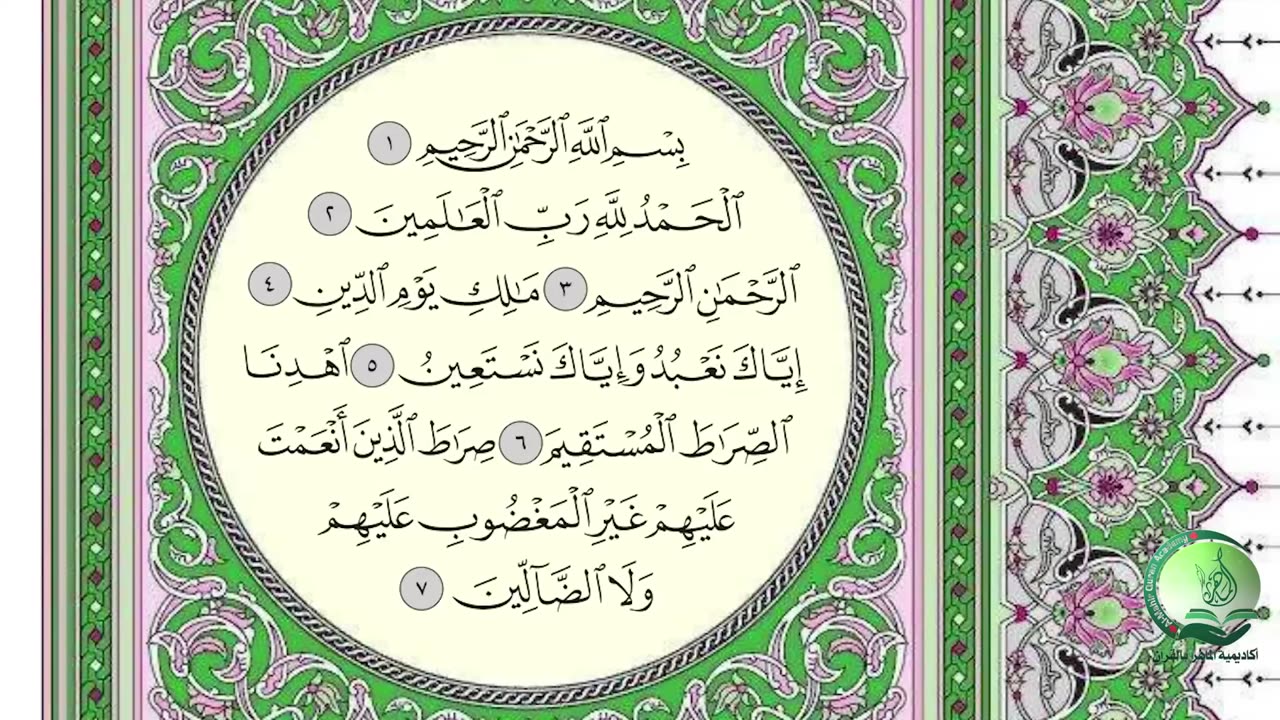 بِسْمِ ٱللَّهِ ٱلرَّحْمَٰنِ ٱلرَّحِيمِ ١
ٱلْحَمْدُ لِلَّهِ رَبِّ ٱلْعَٰلَمِينَ ٢
ٱلرَّحْمَٰنِ ٱلرَّحِيمِ ٣ مَٰلِكِ يَوْمِ ٱلدِّينِ ٤
إِيَّاكَ نَعْبُدُ وَإِيَّاكَ نَسْتَعِينُ ٥ ٱهْدِنَا
ٱلصِّرَٰطَ ٱلْمُسْتَقِيمَ ٦ صِرَٰطَ ٱلَّذِينَ أَنْعَمْتَ
عَلَيْهِمْ غَيْرِ ٱلْمَغْضُوبِ عَلَيْهِمْ
وَلَا ٱلضَّآلِّينَ ٧
Al-Mahir Quran Academy
الماهر
أكاديمية الماهر بالقرآن